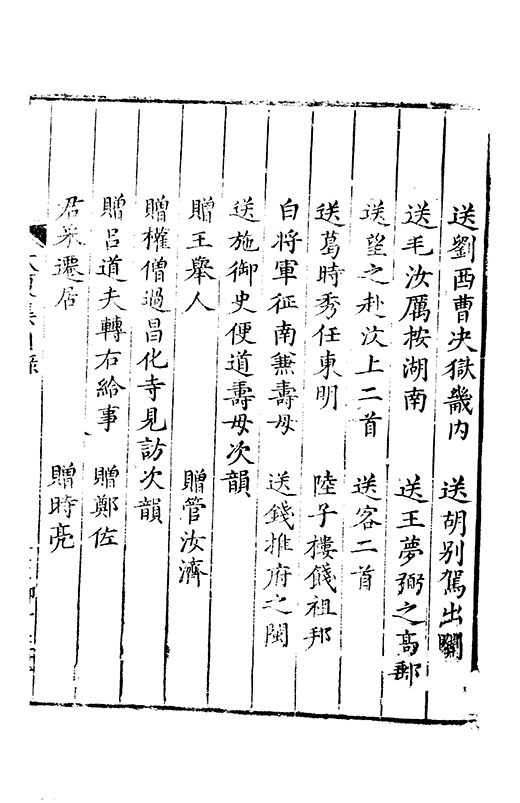 送劉西曹决獄畿内　送胡别駕出關
送毛汝厲按湖南　送王夢弼之高郵
送望之赴汶上二首　送客二首
送葛時秀任東明　陸子樓餞祖邦
白將軍征南兼壽母　送錢推府之閩
送施御史便道壽母次韻
贈王舉人　贈管汝濟
贈權僧過昌化寺見訪次韻
贈吕道夫轉右給事　贈鄭佐
君采遷居　贈時亮
集目錄